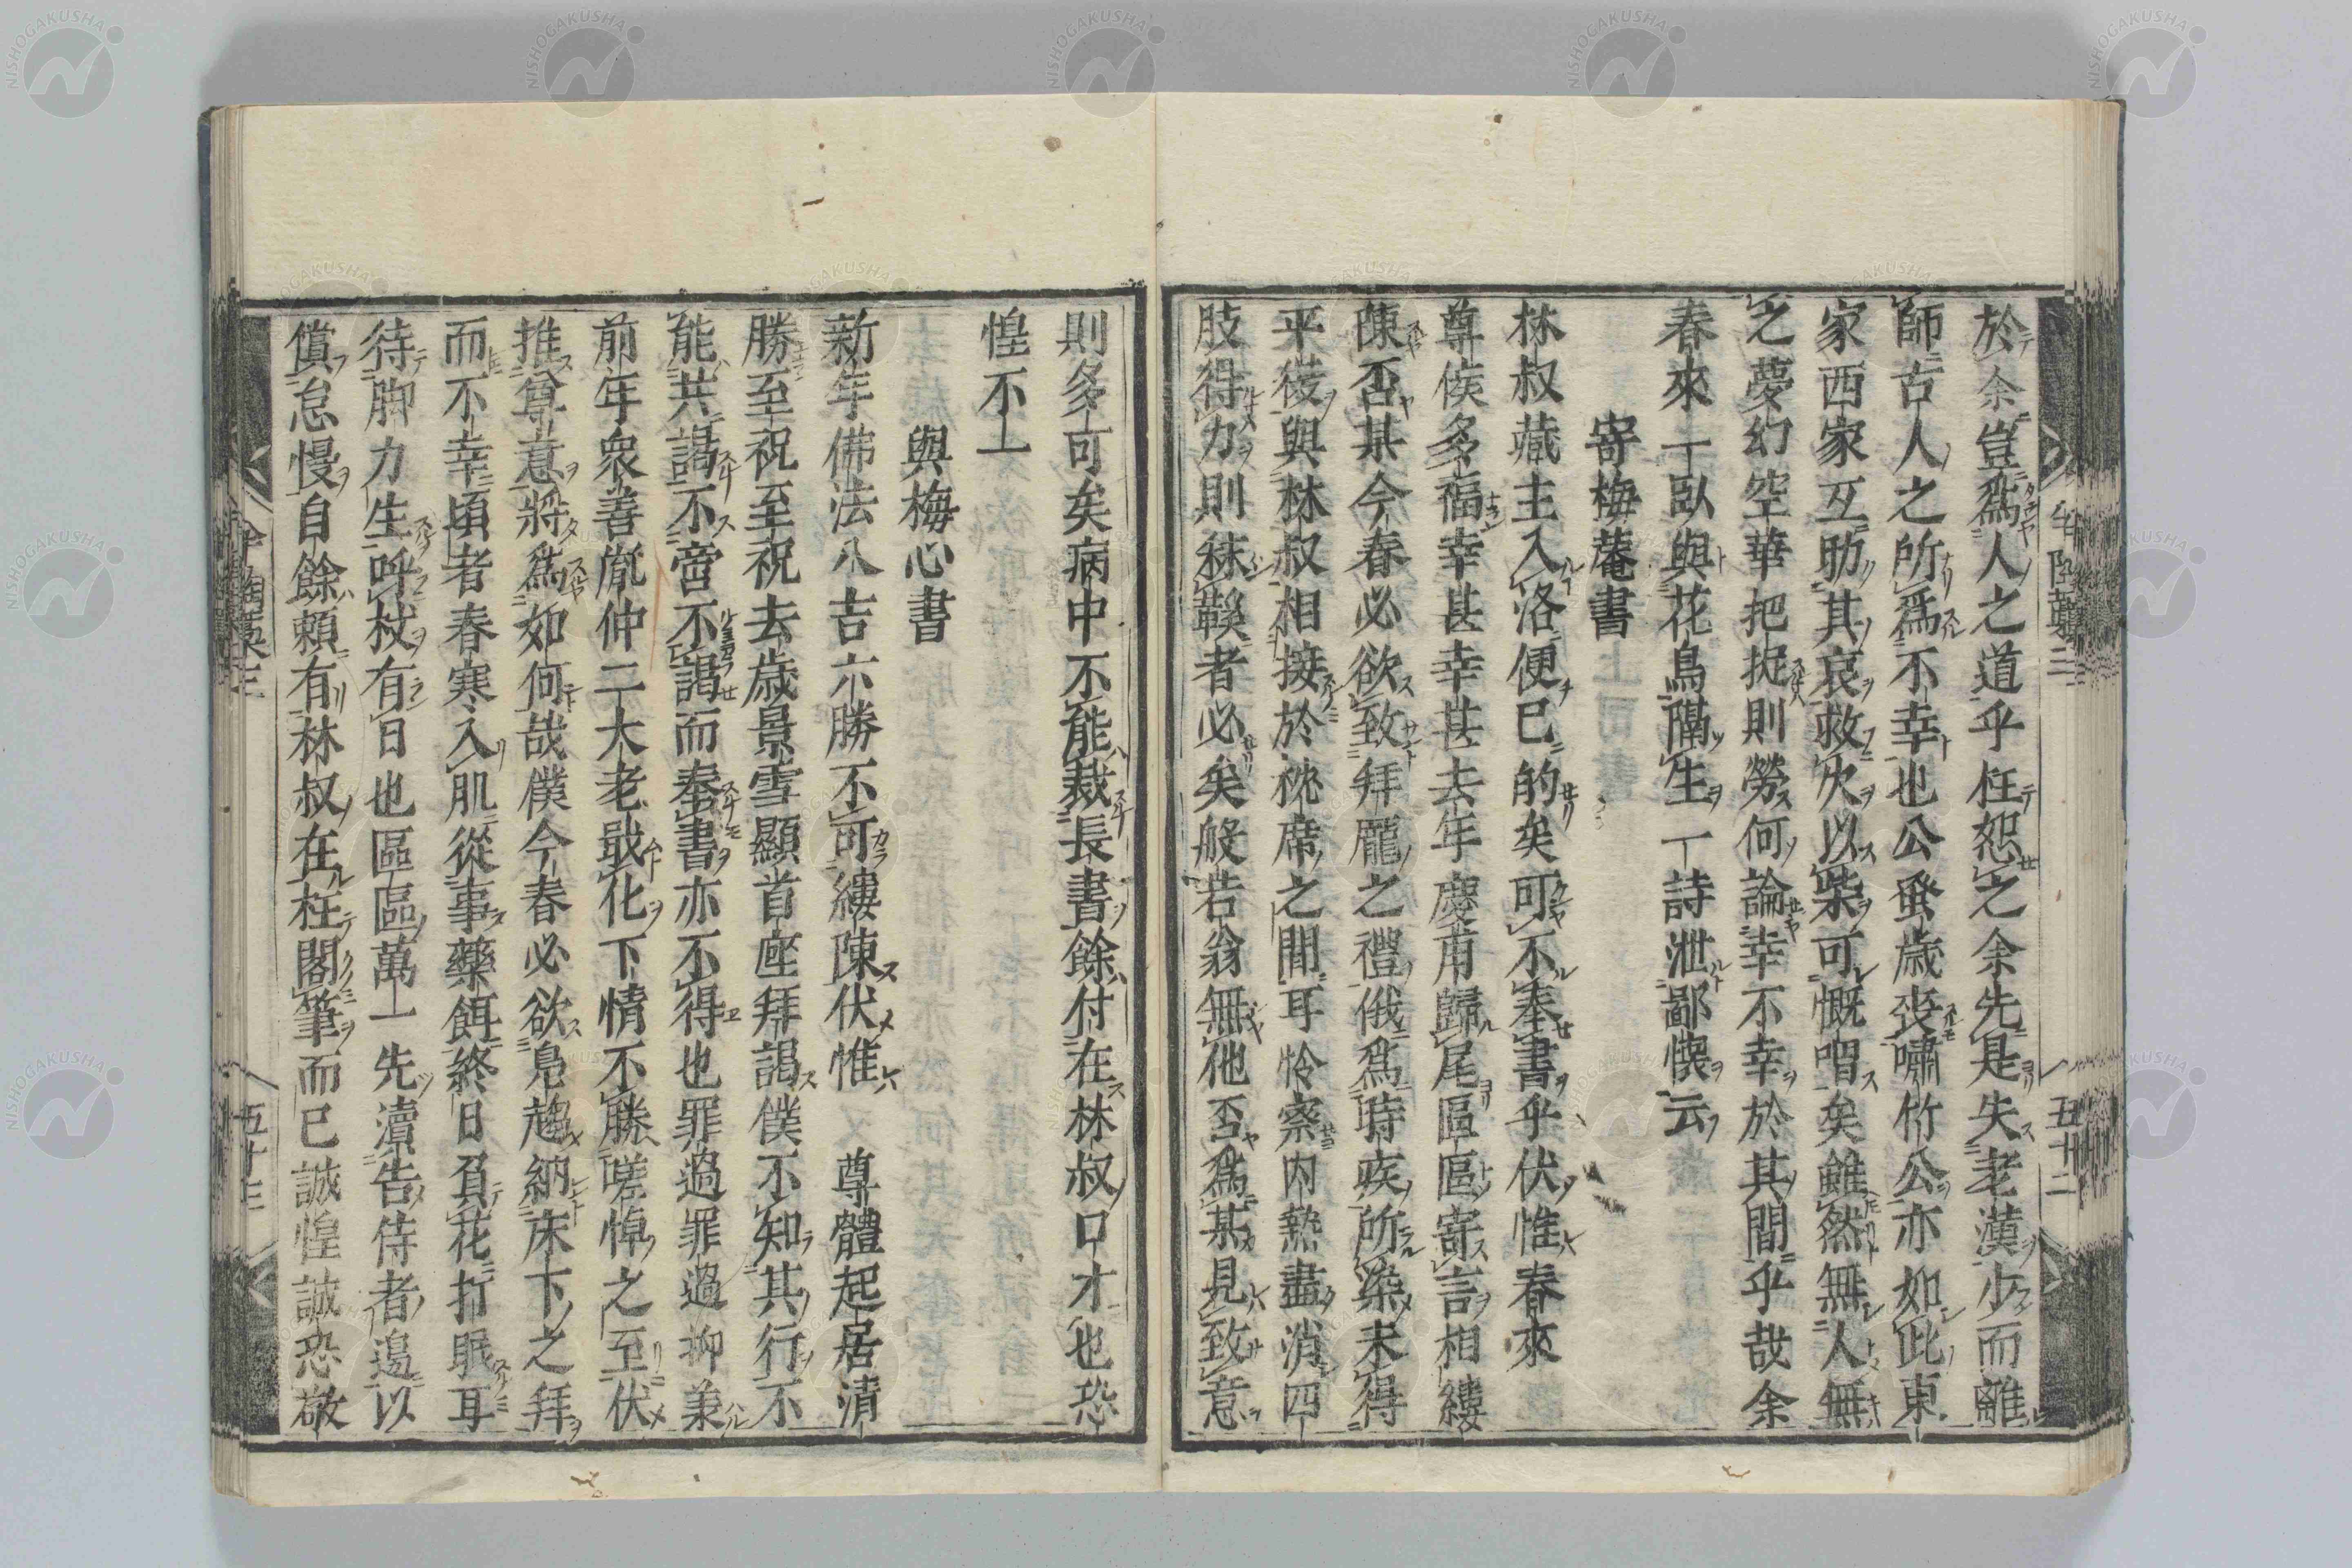 於余豈爲人之道乎枉恕之余先是失老漢少而離
師古人之所爲不幸也公蚤歳喪嘯竹公亦如此東
家西家互助其哀救火以柴可慨唱矣雖然無人無
之夢幻空華把捉則勞何論幸不幸於其間乎哉余
春來一臥與花鳥隔生一詩泄鄙懷云
寄梅菴書
林叔藏主入洛便已的矣可不奉書乎伏惟春來
尊候多福幸甚幸甚去年慶甫歸尾區區寄言相縷
陳否某今春必欲致拜龐之禮俄爲時疾所染未得
平復與林叔相接於枕席之間耳怜察内熱盡消四
肢得力則秣鞍者必矣般若翁無他否爲某見致意
則多可矣病中不能裁長書餘付在林叔口才也恐
惶不一
與梅心書
新年佛法八吉六勝不可縷陳伏惟 尊體起居清
勝至祝至祝去歳景雪顯首座拜謁僕不知其行不
能共謁不啻不謁而奉書亦不得也罪過罪過抑兼
前年衆善胤仲二大老戢化下情不勝嗟悼之至伏
推尊意將爲如何哉僕今春必欲鳧趨納床下之拜
而不幸頃者春寒入肌從事藥餌終日負花打眠耳
待脚力生呼杖有日也區區萬一先瀆告侍者邊以
償怠慢自餘頼有林叔在枉閣筆而已誠惶誠恐敬
五十二
五十三
NISHOGAKUSHA